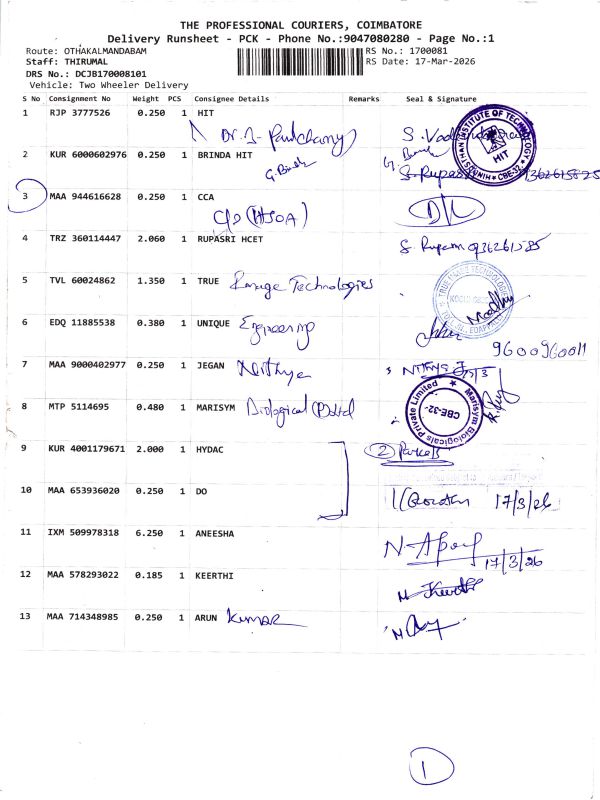 THE PROFESSIONAL COURIERS, COIMBATORE
Delivery Runsheet - PCK - Phone No.:9047080280 - Page No.:1
Route: OTHAKALMANDABAM RS No.: 1700081
Staff: THIRUMAL RS Date: 17-Mar-2026
DRS No.: DCJB170008101
Vehicle: Two Wheeler Delivery
S No Consignment No Weight PCS Consignee Details Remarks Seal & Signature
1 RJP 3777526 0.250 1 HIT
2 KUR 6000602976 0.150 1 BRINDA HIT
G. Brinda
3 MAA 944616628 0.250 1 CCA
C/o (HSOA)
4 TRZ 360114447 2.060 1 RUPASRI HCET
5 TVL 60024862 1.350 1 TRUE Image Technologies
6 EDQ 11885538 0.380 1 UNIQUE Engineering
9600960011
7 MAA 9000402977 0.250 1 JEGAN Nithya
8 MTP 5114695 0.480 1 MARISYM Biological
Marisym Biologicals Private Limited
CBE-32
9 KUR 4001179671 2.000 1 HYDAC 2 Parcels
10 MAA 653936020 0.250 1 DO 17/3/26
11 IXM 509978318 6.250 1 ANEESHA
17/3/26
12 MAA 578293022 0.185 1 KEERTHI Keerthi
13 MAA 714348985 0.250 1 ARUN Kumar
1